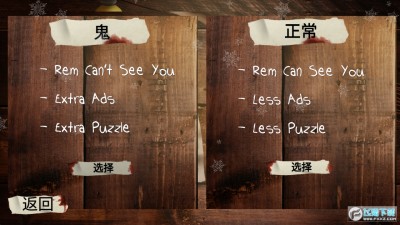 鬼
- Rem Can't See You
- Extra Ads
- Extra Puzzle
选择
正常
- Rem Can See You
- Less Ads
- Less Puzzle
选择
返回
飞翔下载